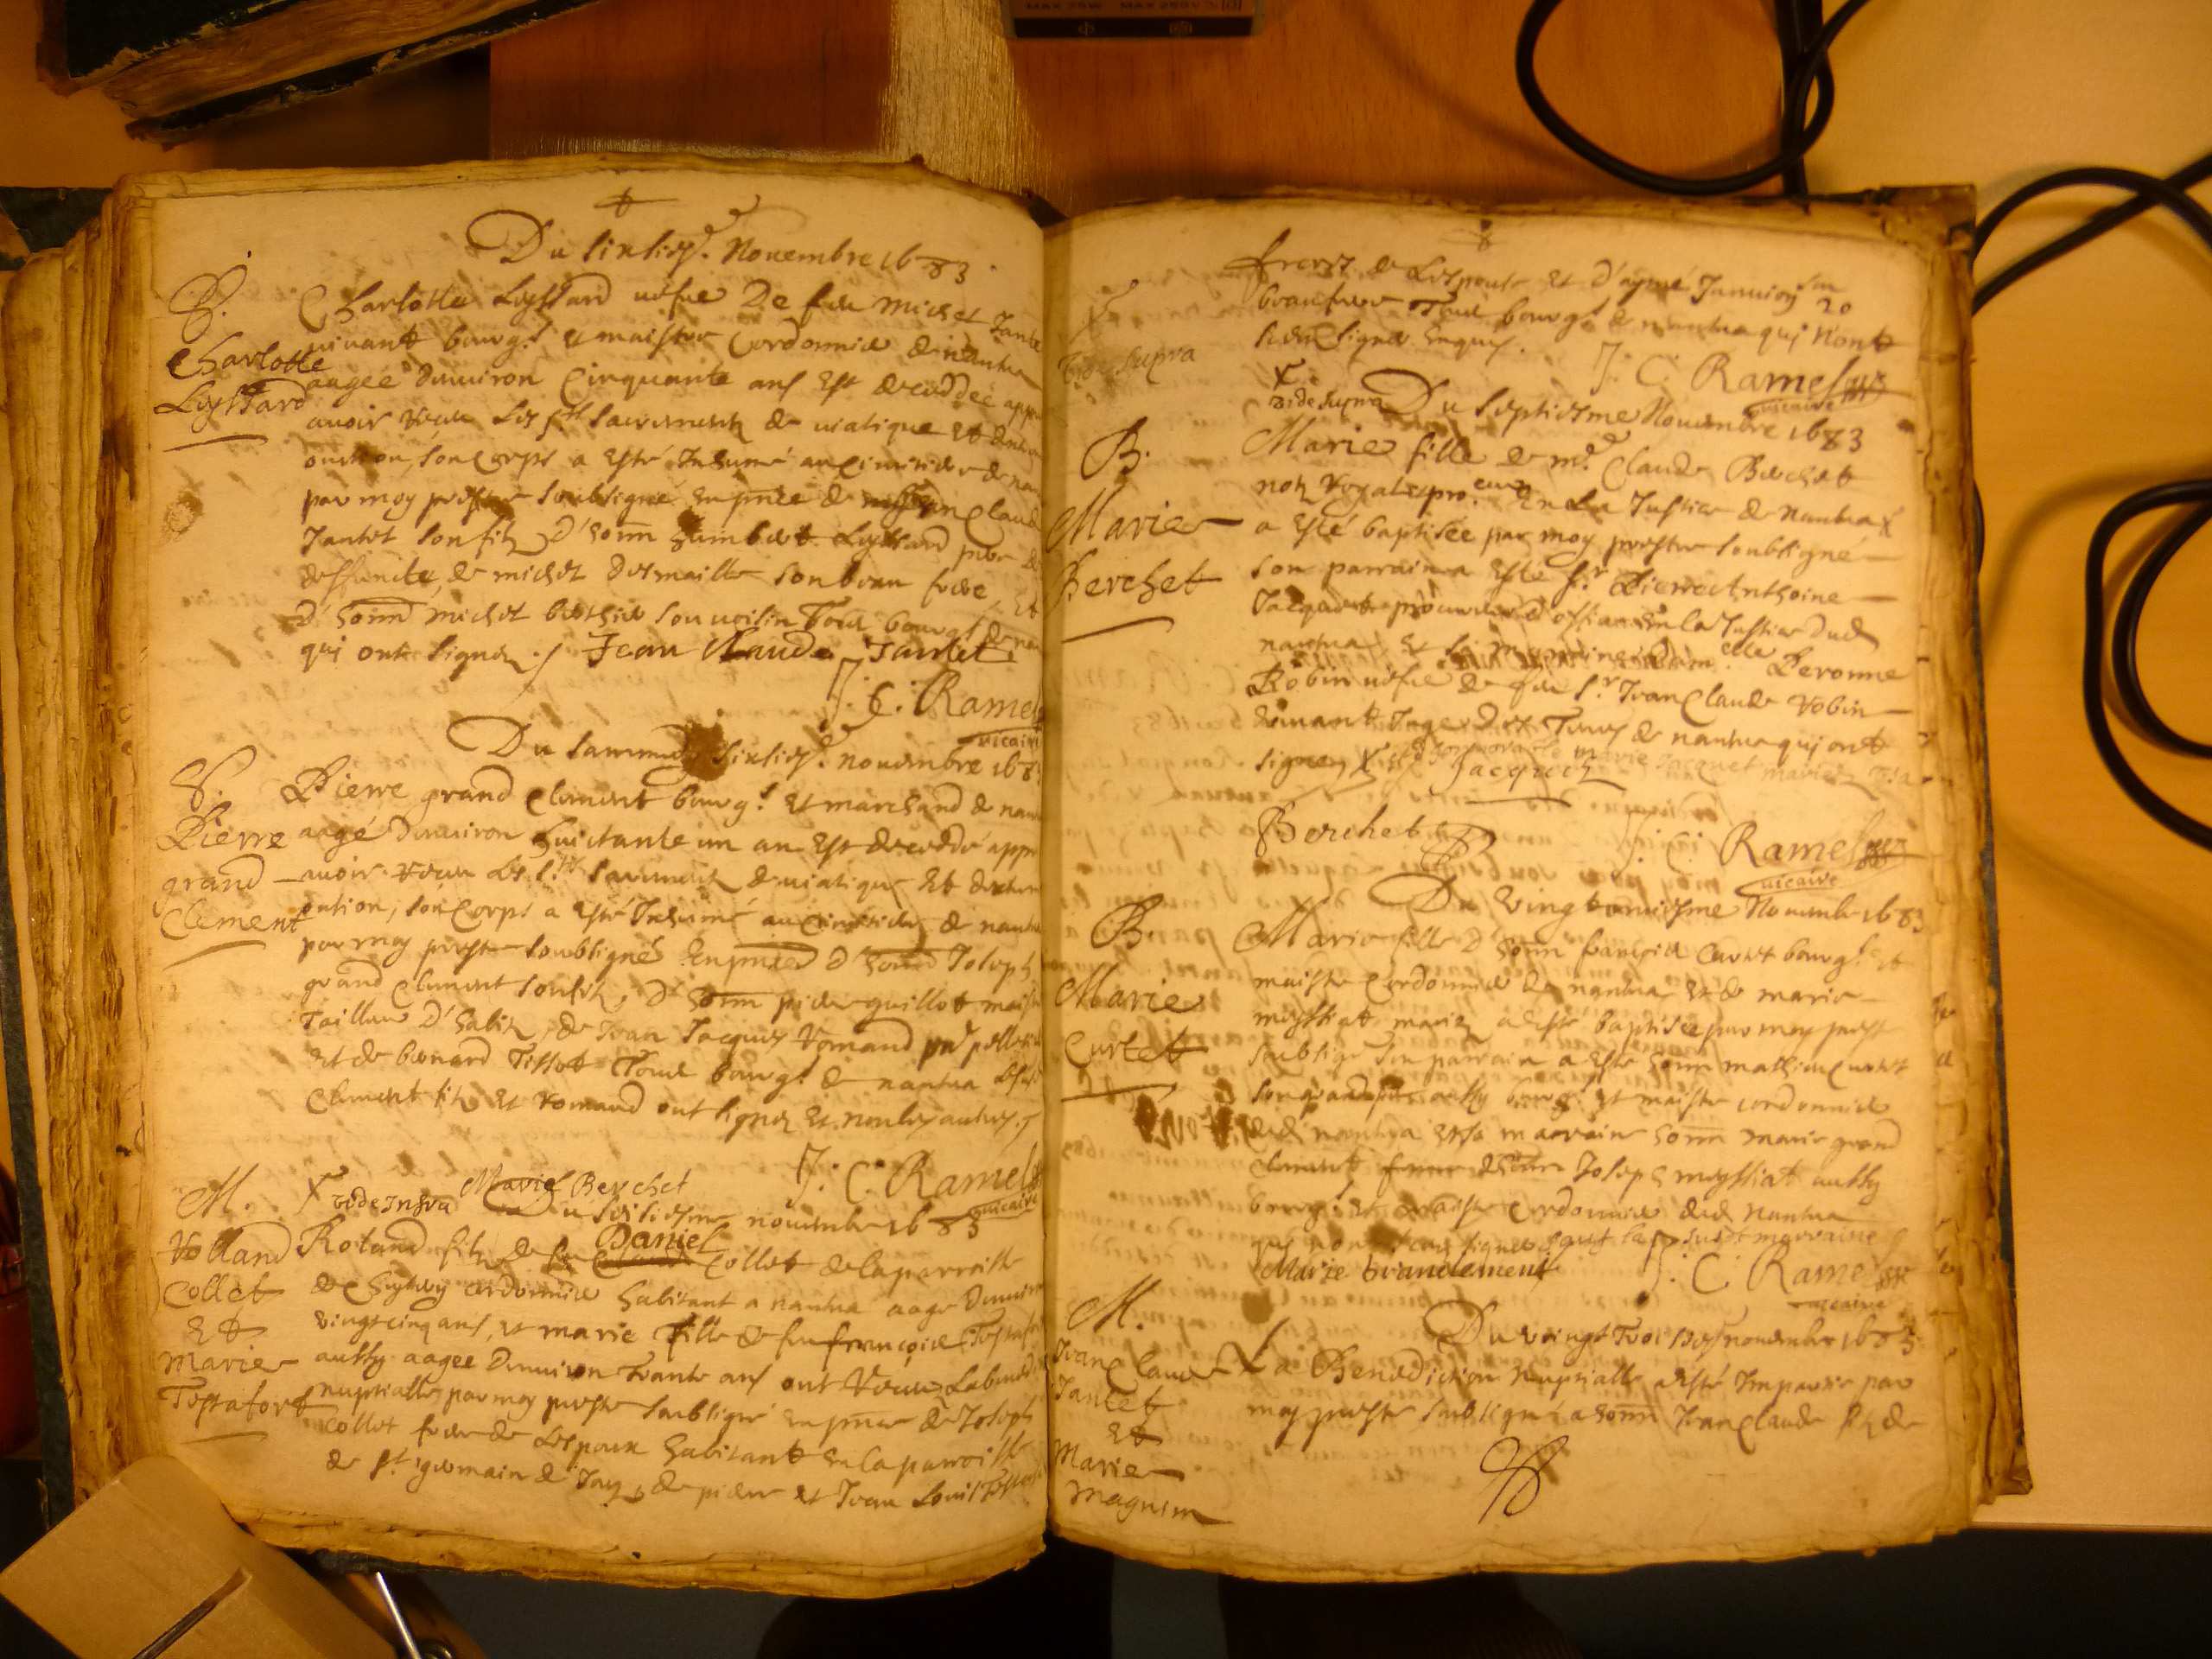 Du sixsiesme Novembre 1683
S.
Charlotte
Lyssard
Charlotte Lyssard vefue De feu Michel Jantet
vivant bourg.s et maistre Cordonnier de nantua
aagée d'environ Cinquante ans est deceddée appres
avoir receu Les sts sacrements de viatique et d'extreme
onction, son Corps a esté Inhumé au Cimitiere de nan
par moy prestre soubsigné en pnce de Jean Claude
Jantet son filz, d'honn humbert Lyssard pere de
deffuncte, de michel Desmailles son beau frere, et
d'honn michel berthier son voisin Tous bourg.s de nan
qui ont signez ./ Jean Claude Jantet
J. C. Ramel
vicaire
Du sammedy sixsies. novembre 1683
S.
Pierre
grand
Clement
Pierre grand Clement bourg.s et marchand de nantua
aagé d'environ huictante un an est decedde appres
avoir receu Les S.ts sacrements de viatique et d'extreme
onction, son Corps a esté Inhumé au Cimitiere de nantua
par moy prestre soubsigné En pnce d'honn Joseph
grand Clement son filz, d'honn piere guillot maistre
Tailleur d'habitz, de Jean Jacques Romand
et de bernard Tissot Tous bourg.s de nantua
Clement filz et Romand ont signez et non les autres ./
J. C. Ramel
vicaire
M.
X vide Infra Marie Berchet
Du novembre 1683
Rolland
Collet
Et
Marie
Testafort
Daniel
Roland filz de feu Collet de la parroisse
de cordonnier habitant a nantua aagé d'environ
vingt cinq ans, et marie fille de feu françois Testafort
aussy aagee d'environ Trante ans ont Receu La benedi
nuptialle par moy prestre soubsigné en pnce de Joseph
Collet frere de Lespoux habitant en la parroisse
de st germain de Joux, de piere et Jean Louis Testafort
freres de Lespouse et d'aymé Janvion son
20
beau frere Tous bourg.s de nantua qui n'ont
sceu signer Enquis.
J. C. Ramel
vicaire
X
vide supra
X
vide supra
Du septiesme Novembre 1683
B.
Marie
Berchet
Marie fille de m.e Claude Berchet
not. Royal et pro.eur En La Justice de nantua X
a esté baptisée par moy prestre soubsigné
son parrain a esté s.r Pierre Anthoine
Jacquet procureur d'office en la Justice dud
nantua et sa marraine dam.elle Peronne
Robin vefue de feu s.r Jean Claude Robin
vivant Juge des Terres de nantua qui ont
signez X et d'honnorable marie Jacquet mariez
Jacquet
Berchet
J. C. Ramel
vicaire
Du vingt uniesme Novembre 1683
B.
Marie
Curtet
Marie fille d'honn françois Curtet bourg.s et
maistre Cordonnier de nantua et de marie
meyssiat mariez a esté baptisée par moy prest
soubsigné son parrain a esté honn mathieu Curtet
son grand pere aussy bourg.s et maistre cordonnier
dud nantua et sa marraine honn marie grand
Clement femme d'honn Joseph meyssiat aussy
bourg.s et maistre Cordonnier dud Nantua
qui n'ont sceu signer sauf la susd marraine
Marie Grandclement
J. C. Ramel
vicaire
Du vingt Troisies novembre 1683
M.
Jean Claude
Jantet
Et
Marie
Magnin
La Benediction Nuptialle a esté Impartie par
moy prestre soubsigné a honn Jean Claude filz de